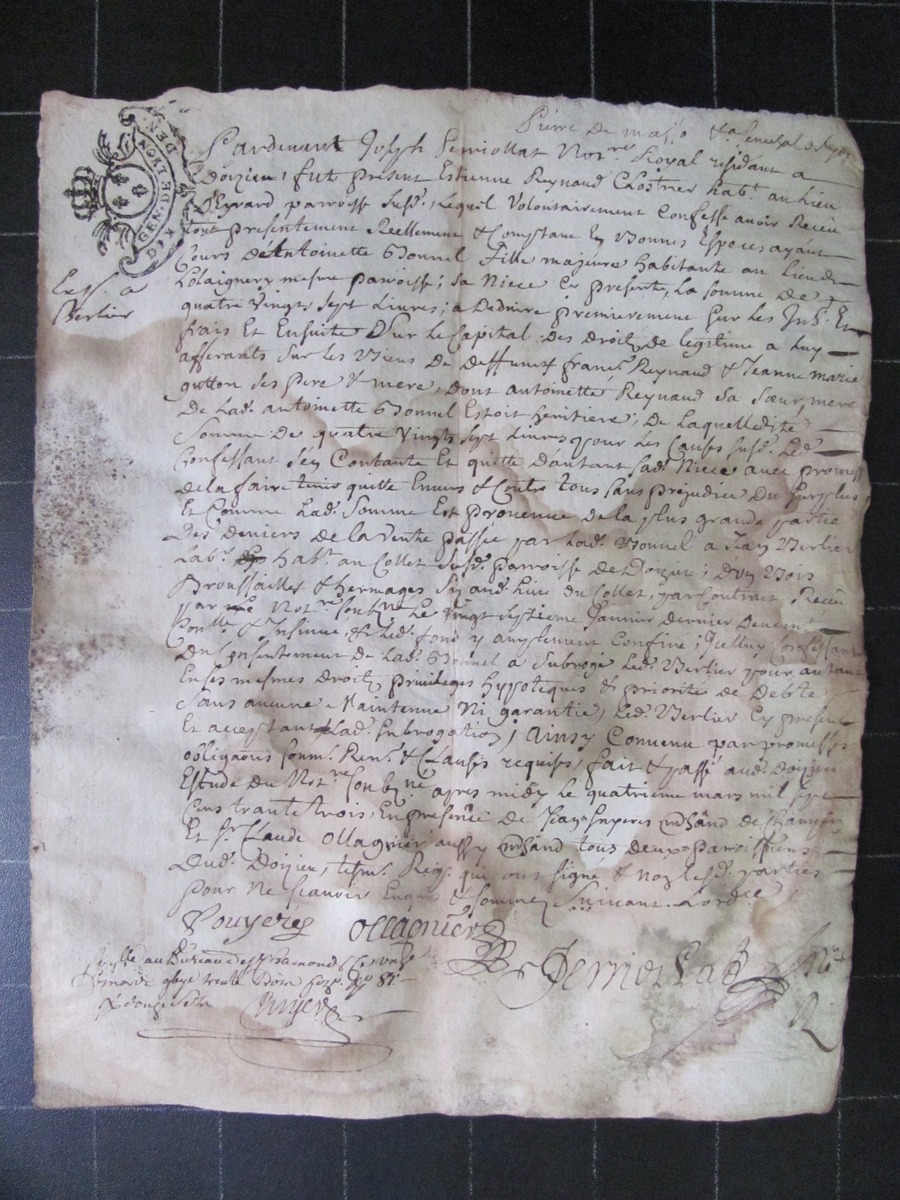 GEN. DE LYON. DEN.
DIX
Pierre de masso & a Senechal de Lyon
Pardevant Joseph Ferriollat Notre Royal residant a
Doizieu, fut present Estienne Reynaud habt. au lieu
parroisse susd., Lequel Volontairement Confesse avoir Receu
tout presentement Reellement & Comptant En Bonnes Especes ayant
Cours d'Antoinette Bonnel Fille majeure habitante au lieu de
mesme parroisse, sa Niece Cy presente, La somme de
quatre Vingts sept Livres, a Deduire premierement sur les Et
frais Et Ensuite Sur le Capital des Droits de legitime a luy
afferants sur les Biens de deffuncts françs. Reynaud & Jeanne marie
gutton ses pere & mere, dont antoinette Reynaud sa sœur, mere
De Lad. antoinette Bonnel Estoit heritiere, De laquelledite
Somme De quatre Vingts sept Livres pour les Causes susd. Led.
Confessant s'en Contante Et quitte d'autant sad. Niece avec promesse
de la faire tenir quitte Envers & Contre tous sans prejudice Du surplus
Et Comme Lad. somme Est provenue de la plus grande partie
Des deniers de la Vente passée par Lad. Bonnel a Jean Berlier
Labr. habt. au Collet susd. parroisse de Doizieu, d'un Bois
Broussailles & hermages aud. Lieu du Collet, par Contract Receu
par Notre soubne Le Vingt septieme Janvier dernier
Conlle & Insinué, & Led. fond y amplement Confiné, Icelluy Confessant
Du Consentement de Lad. Bonnel a Subrogé Led. Berlier pour autant
En ses mesmes droits, privileges hypoteques & priorité de Debte
Sans aucune Maintenue Ni garantie, Led. Berlier Cy present
Et acceptant Lad. subrogation, Ainsy Convenu par promesses
obligaons soum. Ren. & Clauses requises, fait & passé aud. Doizieu
Estude du Notre soubne apres midy le quatrieme mars mil sept
Cens trante trois, En presence de Jean mchand de
Et Sr. Claude Ollagnier aussy mchand tous deux
Dud. Doizieu, tesm. Req. qui ont signé & non lesd. parties
pour Ne scavoir Enquis & sommé Suivant Lordce
Ollagnier
Ferriollat Nre
Conlle au Bureau de St Chamond
Berlier